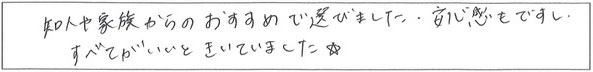 知人や家族からのおすすめで選びました。安心感もですし、
すべてがいいときいていました☆